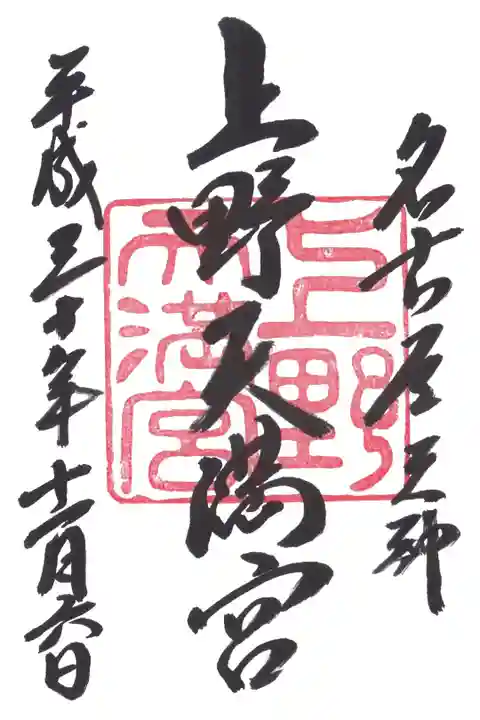 名古屋天神
上野天満宮
上野
天満宮
平成三十年十一月六日